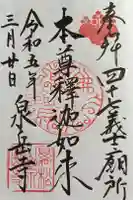 奉拝 四十七義士廟所
本尊釋迦如来
泉岳寺
令和五年
三月廿日